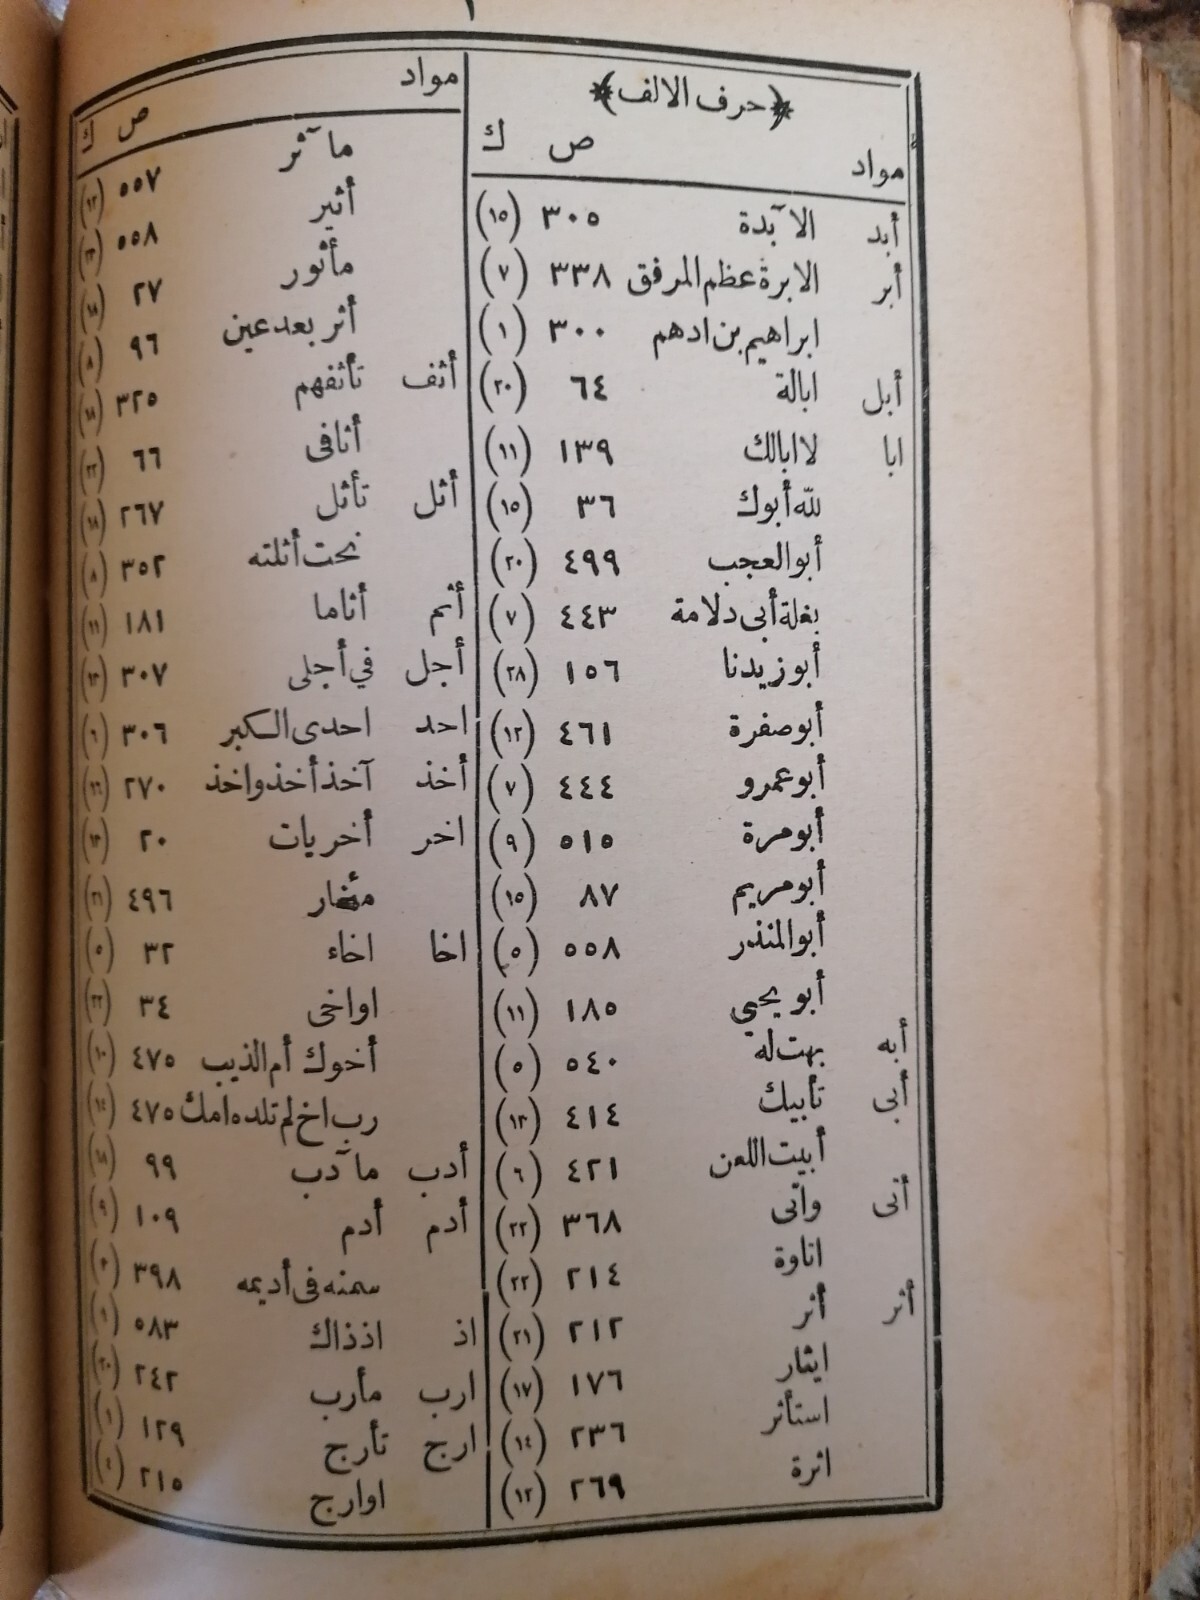 ١
﴿حرف الالف﴾
مواد ص ك
أبد الآبدة ٣٠٥ (١٥)
أبر الابرة عظم المرفق ٣٣٨ (٧)
ابراهيم بن ادهم ٣٠٠ (١)
أبل ابالة ٦٤ (٢٠)
ابا لا ابالك ١٣٩ (١١)
لله أبوك ٣٦ (١٥)
أبو العجب ٤٩٩ (٢٠)
بغلة أبى دلامة ٤٤٣ (٧)
أبو زيدنا ١٥٦ (٢٨)
أبو صفرة ٤٦١ (١٢)
أبو عمرو ٤٤٤ (٧)
أبو مرة ٥١٥ (٩)
أبو مريم ٨٧ (١٥)
أبو المنذر ٥٥٨ (٥)
أبو يحيي ١٨٥ (١١)
أبه بهت له ٥٤٠ (٥)
أبى تأبيك ٤١٤ (١٣)
أبيت اللعن ٤٢١ (٦)
أتى واتى ٣٦٨ (٢٢)
اتاوة ٢١٤ (٢٢)
أثر أثر ٢١٢ (٢١)
ايثار ١٧٦ (١٧)
استأثر ٢٣٦ (١٤)
اثرة ٢٦٩ (١٢)
مواد ص ك
مآثر ٥٥٧ (١٢)
أثير ٥٥٨
مأثور ٢٧ (١٨)
أثر بعد عين ٩٦ (٨)
أثف تأثفهم ٣٢٥ (١٨)
أثافى ٦٦ (٢٢)
أثل تأثل ٢٦٧ (١٨)
نحت أثلته ٣٥٢ (٨)
أثم أثاما ١٨١ (١١)
أجل في أجلى ٣٠٧ (١٣)
احد احدى الكبر ٣٠٦
أخذ آخذ أخذ واخذ ٢٧٠
اخر أخريات ٢٠
مئخار ٤٩٦ (٢١)
اخا اخاء ٣٢ (٥)
اواخى ٣٤ (٢٢)
أخوك أم الذيب ٤٧٥ (١٠)
رب اخ لم تلده امك ٤٧٥ (١٤)
أدب مآدب ٩٩ (١٨)
أدم أدم ١٠٩ (٩)
سمنه فى أديمه ٣٩٨
اذ اذ ذاك ٥٨٣
ارب مأرب ٢٤٢ (٢٠)
ارج تأرج ١٢٩ (١)
اوارج ٢١٥ (٤)